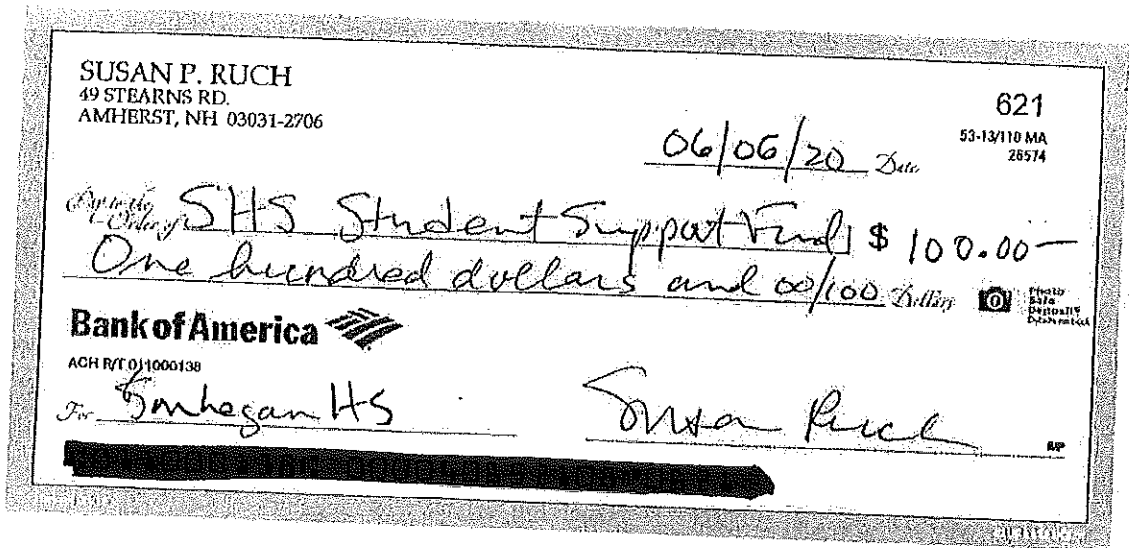 SUSAN P. RUCH
49 STEARNS RD.
AMHERST, NH 03031-2706
621
53-13/110 MA
26574
06/06/20 Date
Pay to the Order of SHS Student Support Fund $ 100.00
One hundred dollars and 00/100 Dollars
Photo Safe Deposit®
Bank of America
ACH R/T 011000138
For Souhegan HS
Susan Ruch
MP